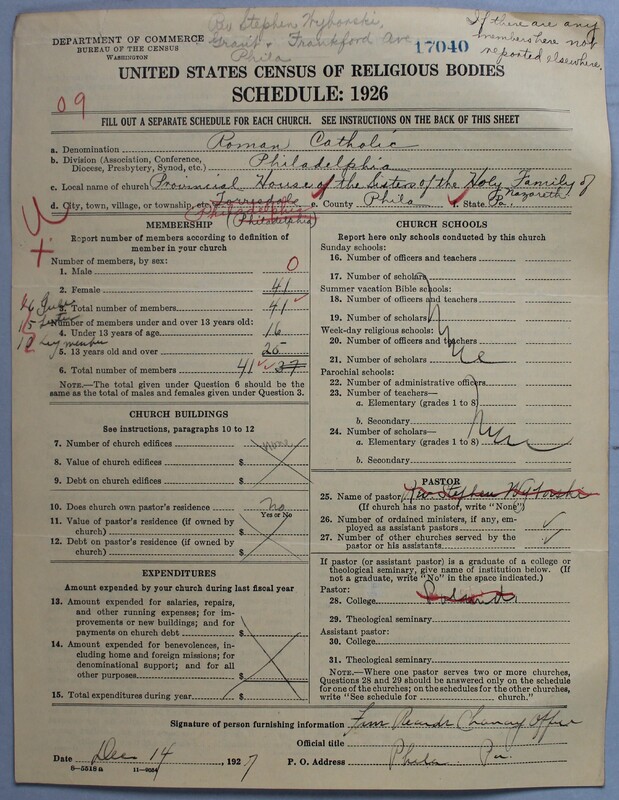 Rev Stephen Wybonski,
Grant & Frankford Ave
Phila
17040
If there are any
members here not
reported elsewhere.
DEPARTMENT OF COMMERCE
BUREAU OF THE CENSUS
WASHINGTON
UNITED STATES CENSUS OF RELIGIOUS BODIES
SCHEDULE: 1926
09
FILL OUT A SEPARATE SCHEDULE FOR EACH CHURCH. SEE INSTRUCTIONS ON THE BACK OF THIS SHEET
a. Denomination Roman Catholic
b. Division (Association, Conference,
Diocese, Presbytery, Synod, etc.) Philadelphia
c. Local name of church Provincial House of the Sisters of the Holy Family of
Nazareth
d. City, town, village, or township, etc. Torresdale e. County Phila f. State Pa.
Philadelphia (Philadelphia)
MEMBERSHIP
Report number of members according to definition of
member in your church
Number of members, by sex:
1. Male 0
2. Female 41
3. Total number of members 41
Number of members under and over 13 years old:
4. Under 13 years of age 16
5. 13 years old and over 25
6. Total number of members 41 37
NOTE.—The total given under Question 6 should be the
same as the total of males and females given under Question 3.
CHURCH BUILDINGS
See instructions, paragraphs 10 to 12
7. Number of church edifices None
8. Value of church edifices $
9. Debt on church edifices $
10. Does church own pastor's residence No
Yes or No
11. Value of pastor's residence (if owned by
church) $
12. Debt on pastor's residence (if owned by
church) $
EXPENDITURES
Amount expended by your church during last fiscal year
13. Amount expended for salaries, repairs,
and other running expenses; for im-
provements or new buildings; and for
payments on church debt $
14. Amount expended for benevolences,
including home and foreign missions; for
denominational support; and for all
other purposes $
15. Total expenditures during year $
CHURCH SCHOOLS
Report here only schools conducted by this church
Sunday schools:
16. Number of officers and teachers
17. Number of scholars
Summer vacation Bible schools:
18. Number of officers and teachers
19. Number of scholars
Week-day religious schools:
20. Number of officers and teachers
21. Number of scholars
Parochial schools:
22. Number of administrative officers
23. Number of teachers—
a. Elementary (grades 1 to 8)
b. Secondary
24. Number of scholars—
a. Elementary (grades 1 to 8)
b. Secondary
PASTOR
25. Name of pastor Rev Stephen Wybonski
(If church has no pastor, write "None")
26. Number of ordained ministers, if any, em-
ployed as assistant pastors
27. Number of other churches served by the
pastor or his assistants
If pastor (or assistant pastor) is a graduate of a college or
theological seminary, give name of institution below. (If
not a graduate, write "No" in the space indicated.)
Pastor:
28. College
29. Theological seminary
Assistant pastor:
30. College
31. Theological seminary
NOTE.—Where one pastor serves two or more churches,
Questions 28 and 29 should be answered only on the schedule
for one of the churches; on the schedules for the other churches,
write "See schedule for church."
Signature of person furnishing information From Records Chancery Office
Official title
Date Dec 14, 1927 P. O. Address Phila Pa
8—5518a 11—9554